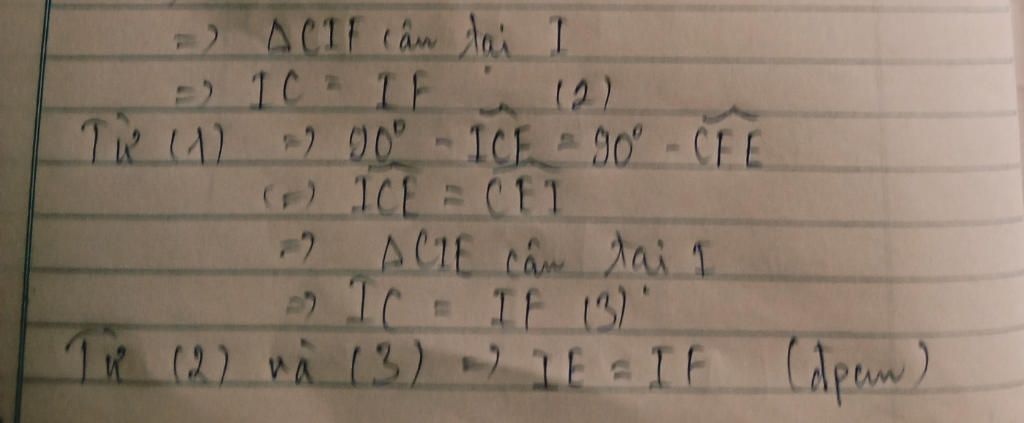 => ΔCIF cân tại I
=> IC = IF (2)
Từ (1) => 90° - ICE = 90° - CFE
(=) ICE = CEI
=> ΔCIE cân tại I
=> IC = IF (3)
Từ (2) và (3) => IE = IF (đpcm)